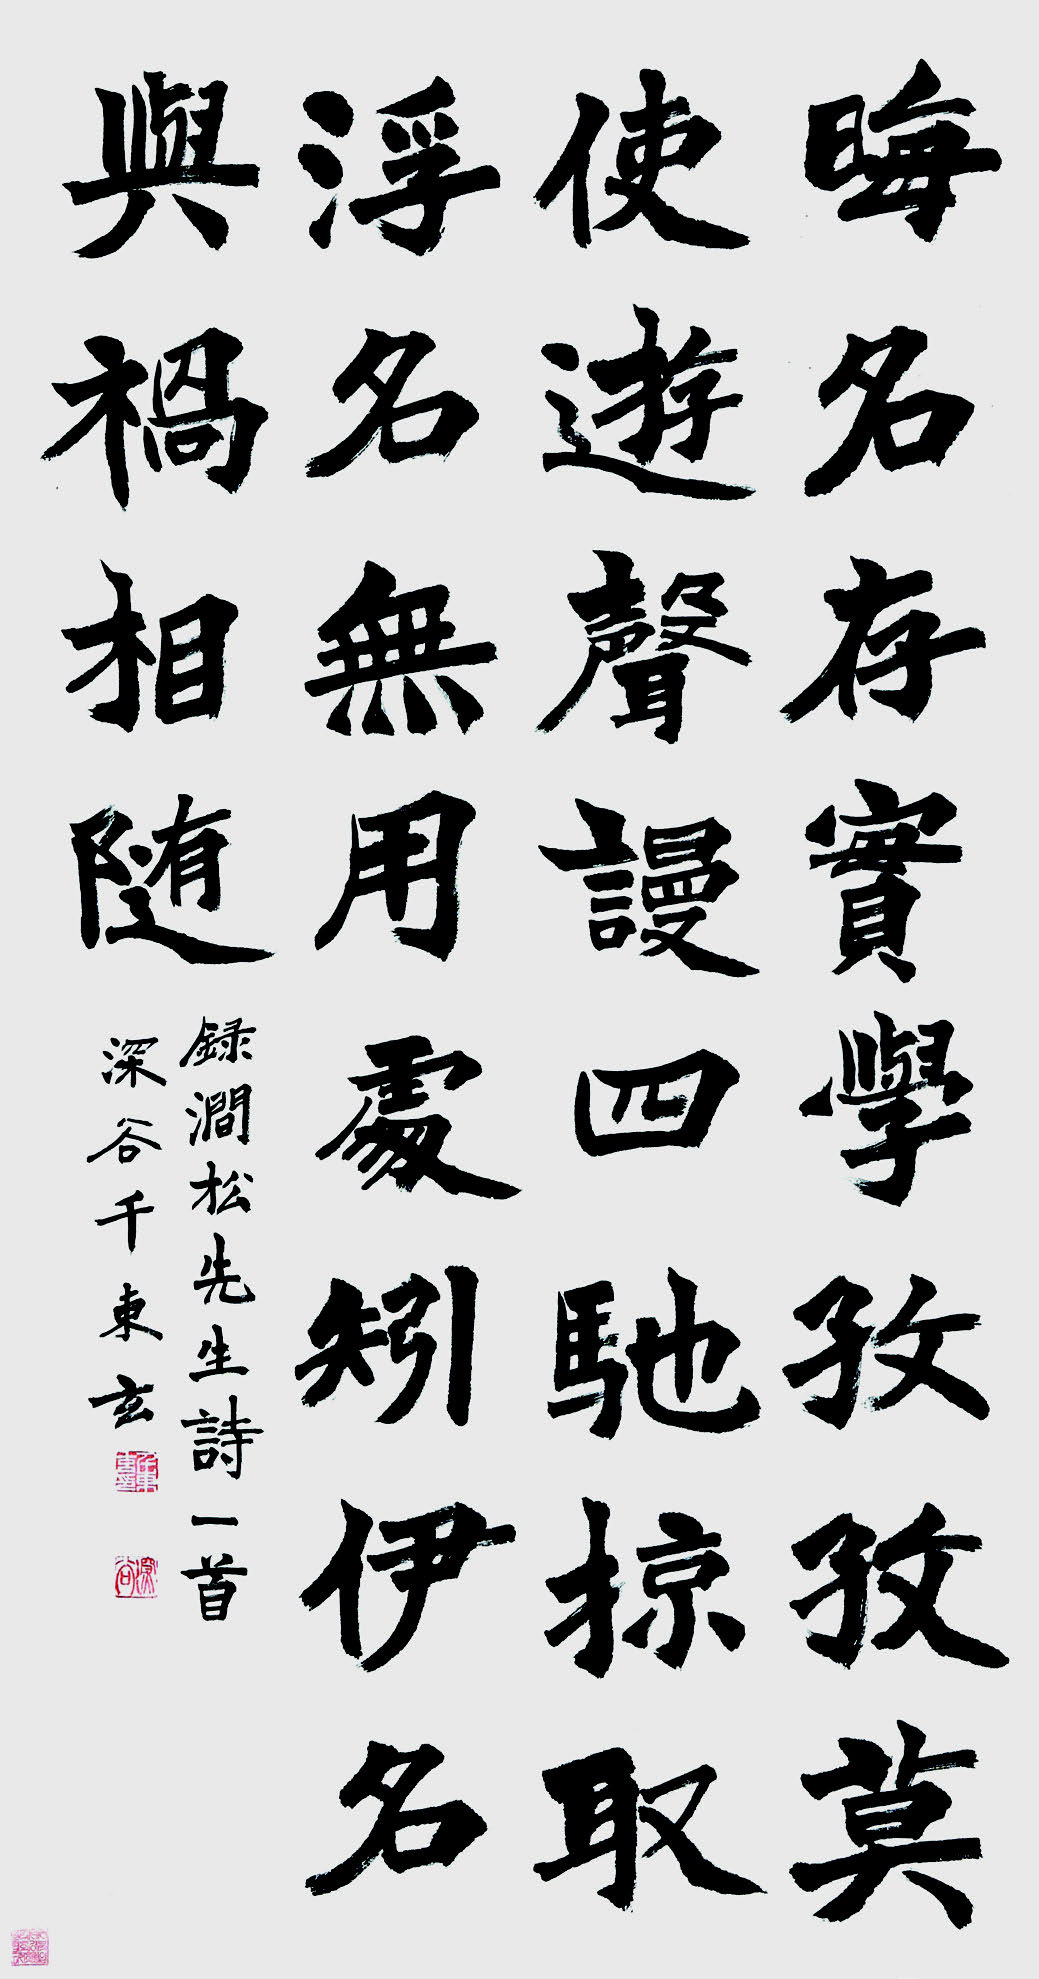 晦名存實學孜孜莫
使遊聲謾四馳掠取
浮名無用處矧伊名
與禍相随
録澗松先生詩一首
深谷千東玄
深谷